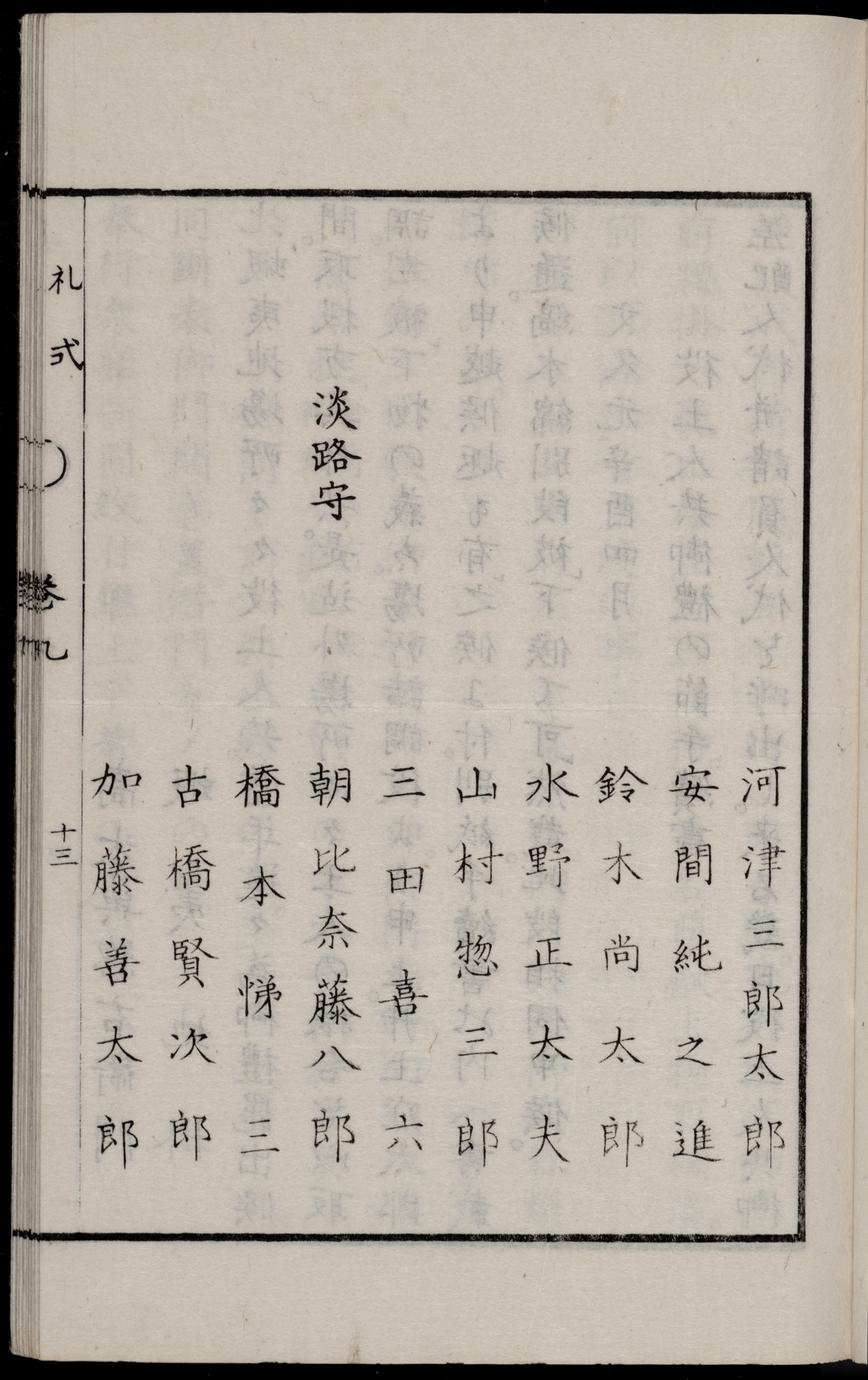 河津三郎太郎
安間純之進
鈴木尚太郎
水野正太夫
山村惣三郎
三田喜六
淡路守
朝比奈藤八郎
橋本悌三
古橋賢次郎
加藤善太郎
礼式
巻九
十三